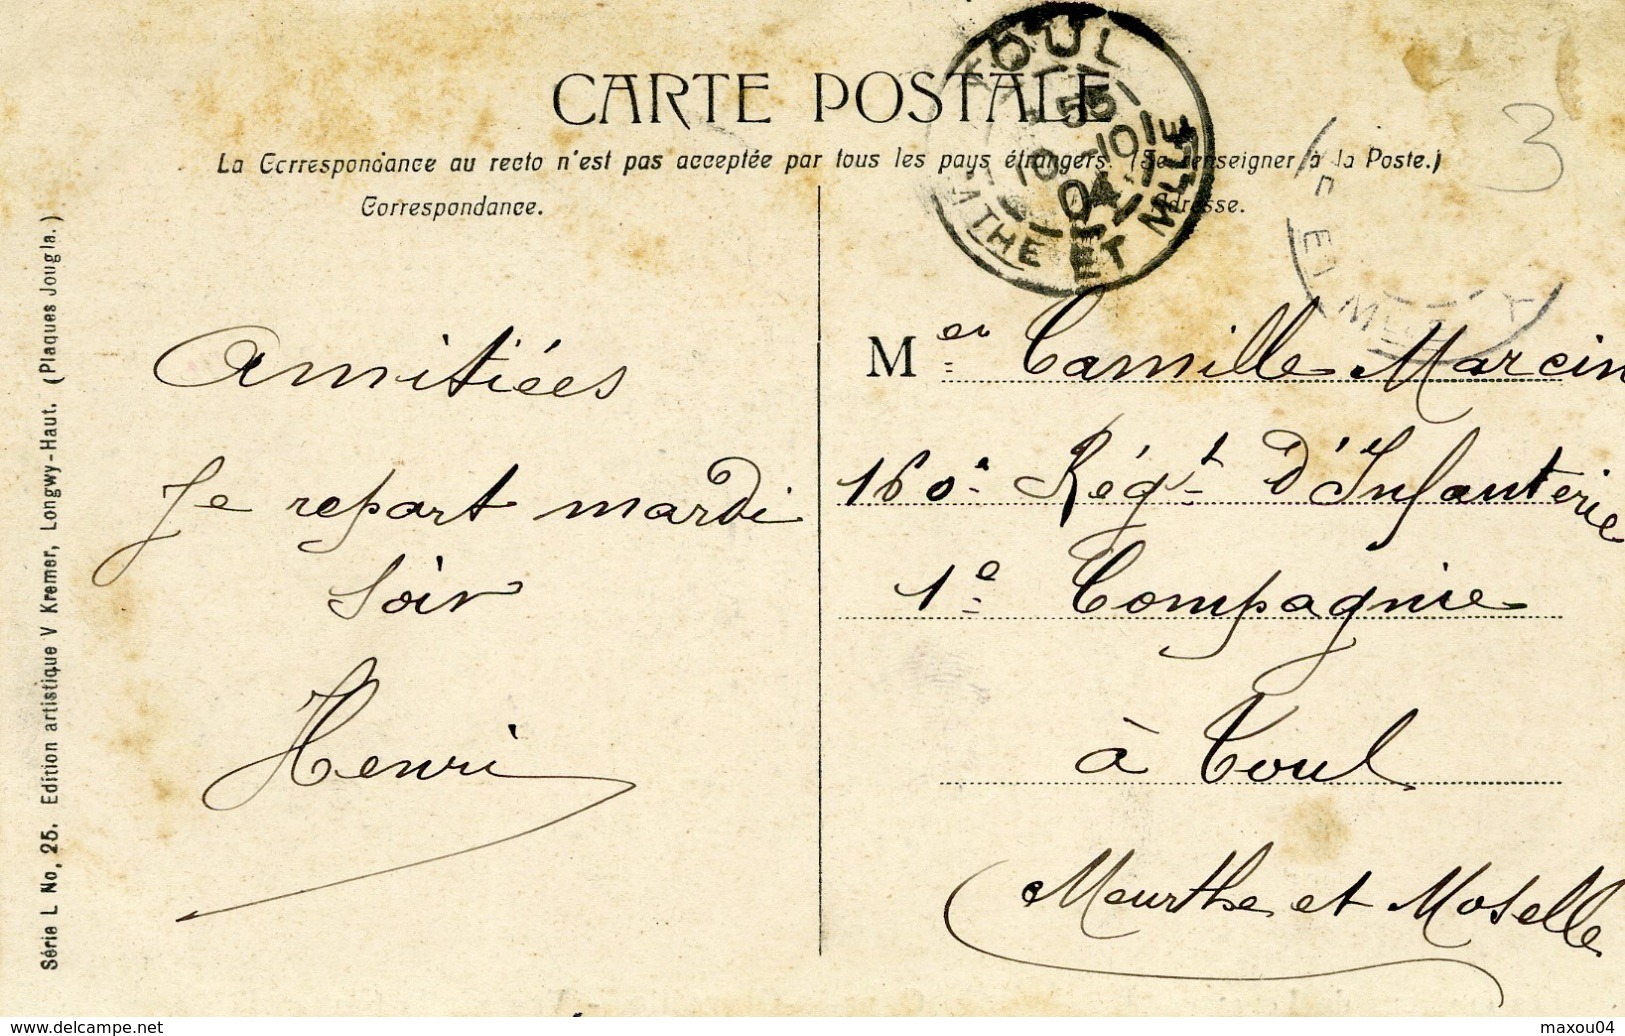 CARTE POSTALE
La Correspondance au recto n'est pas acceptée par tous les pays étrangers. (Se renseigner à la Poste.)
Correspondance.
Adresse.
TOUL
55
10-10
04
MTHE ET MLLE
3
ET M
Amitiées
Je repart mardi
soir
Henri
M
Camille Marcin
160e Régt d'Infanterie
1e Compagnie
à Toul
Meurthe et Moselle
Série L No, 25. Edition artistique V Kremer, Longwy-Haut. (Plaques Jougla.)
www.delcampe.net
maxou04